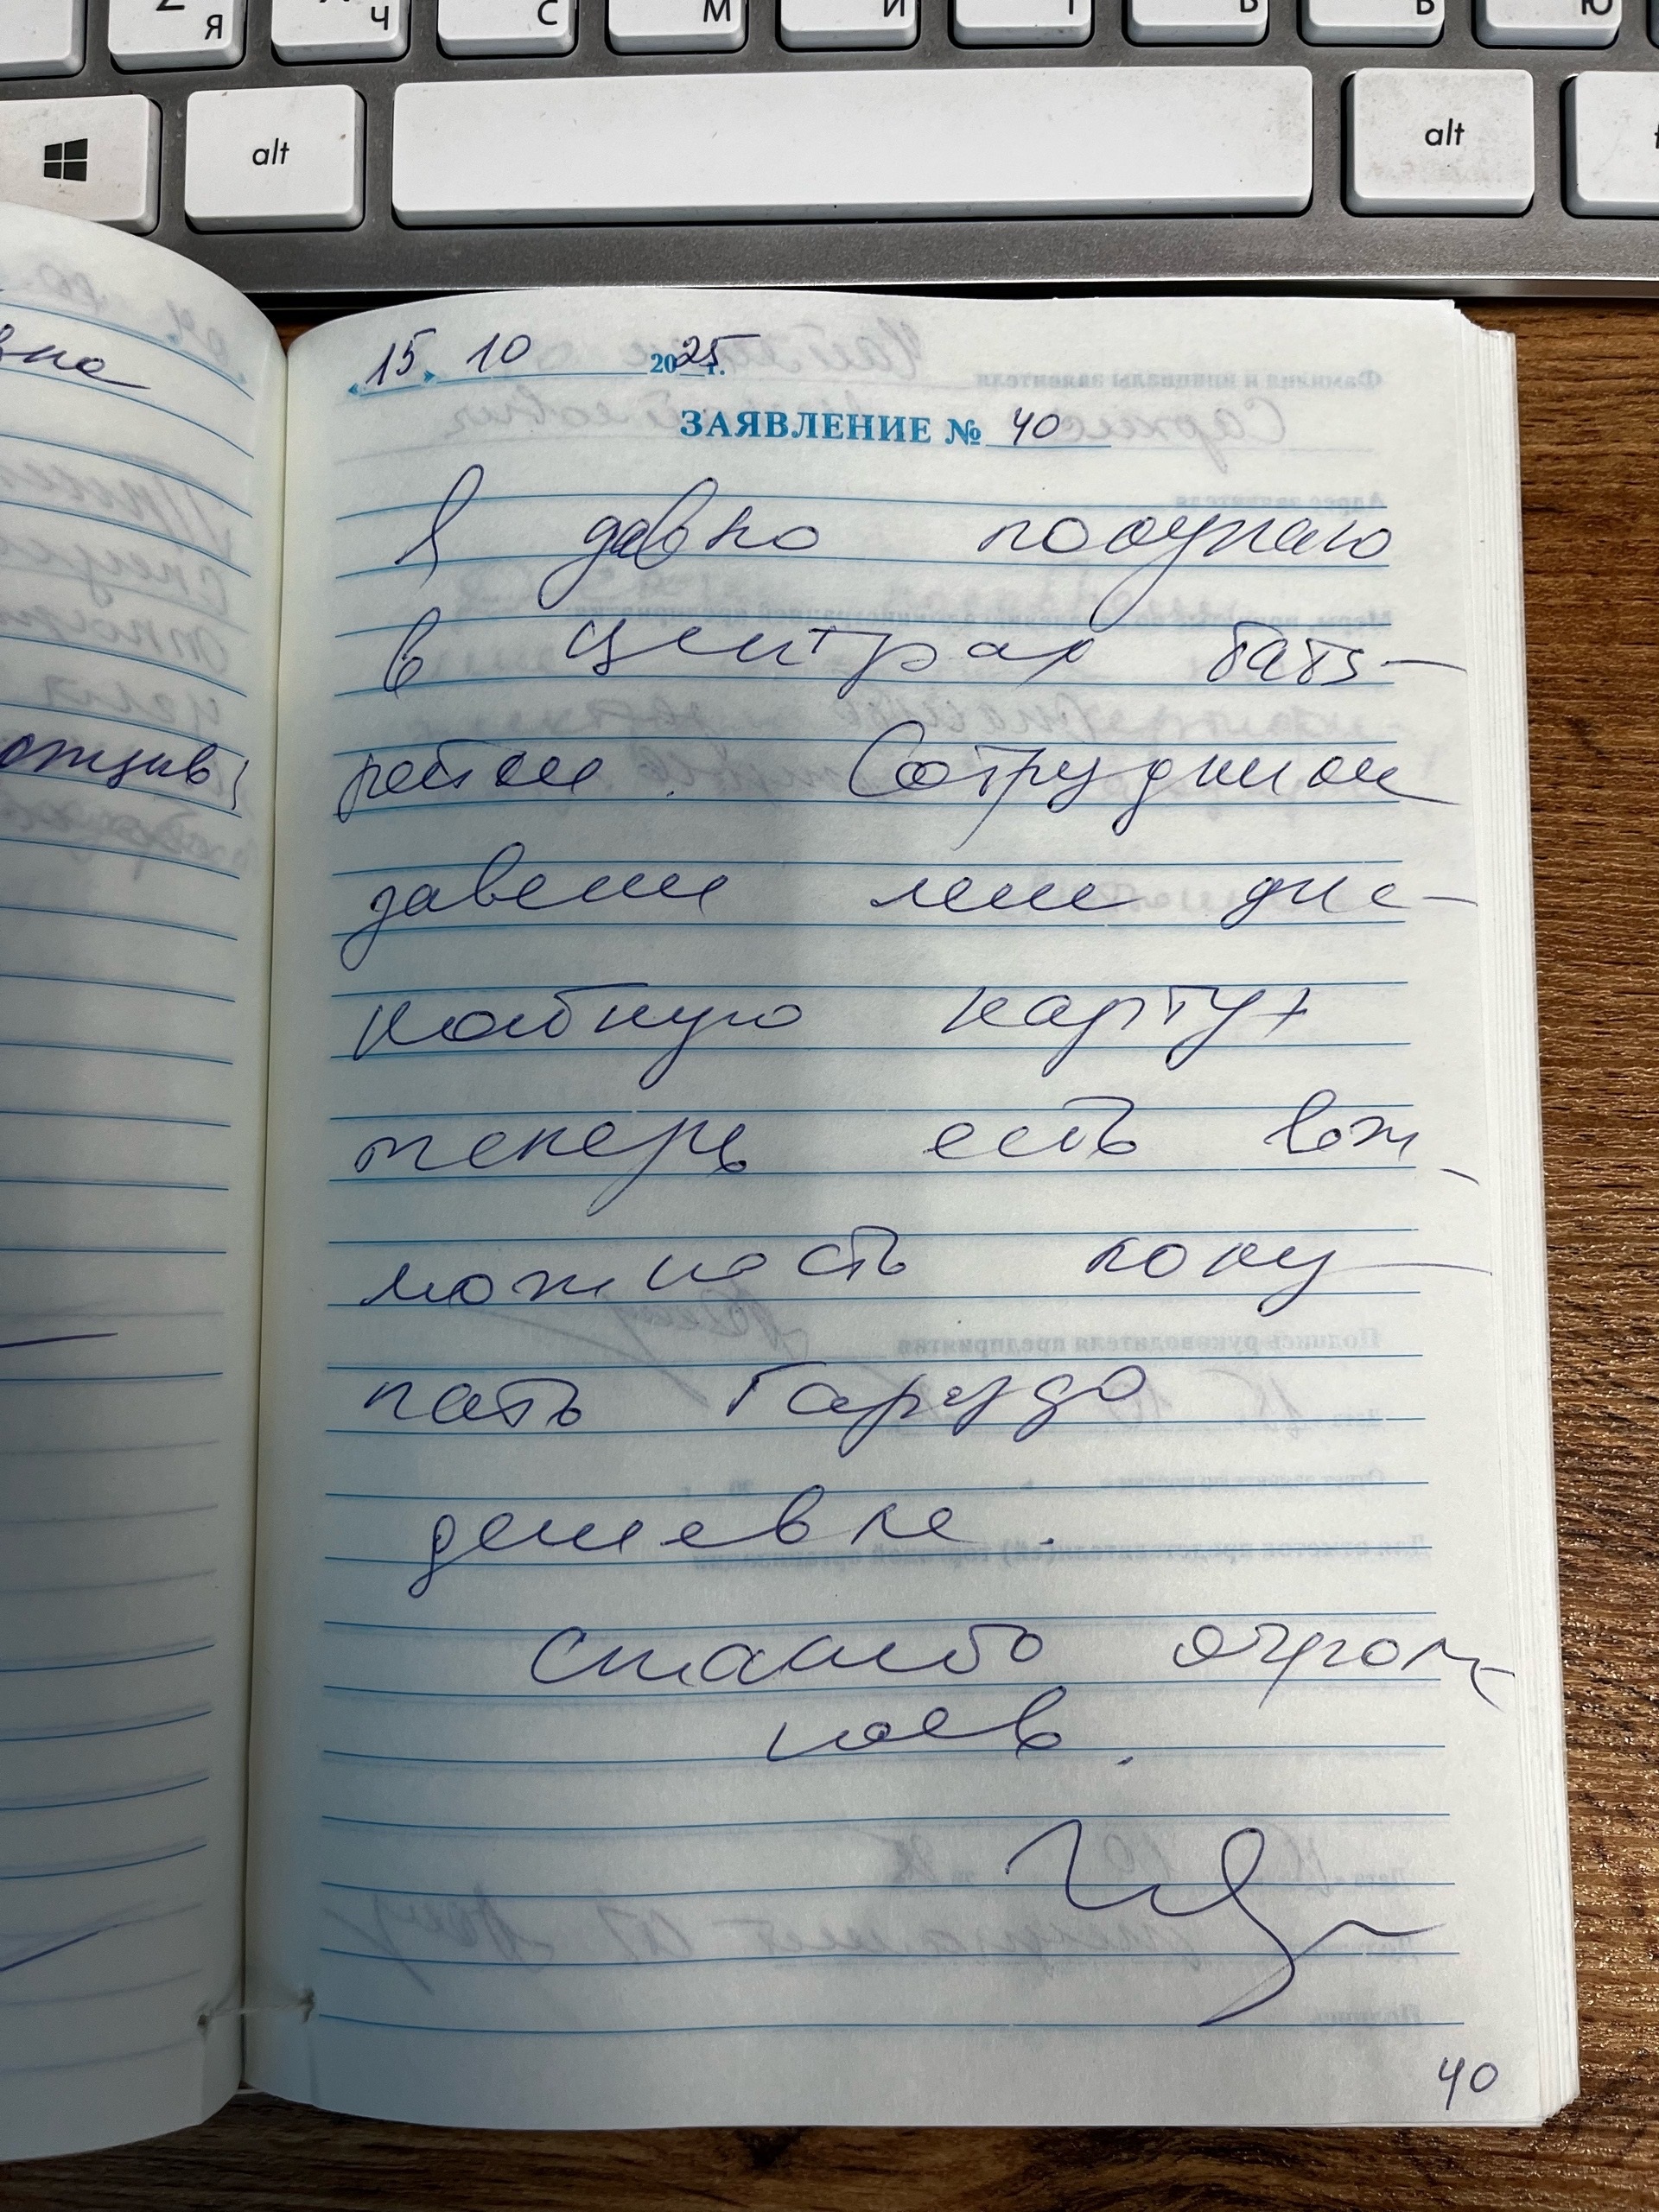 Я
Ч
С
М
И
Ю
alt
alt
вна
отзыв
15 10 2025 г.
ЗАЯВЛЕНИЕ № 40
Я давно покупаю
в центрах бата-
рейки. Сотрудники
завели мне дис-
контную карту и
теперь есть воз-
можность поку-
пать гораздо
дешевле.
Спасибо огром-
ное.
40